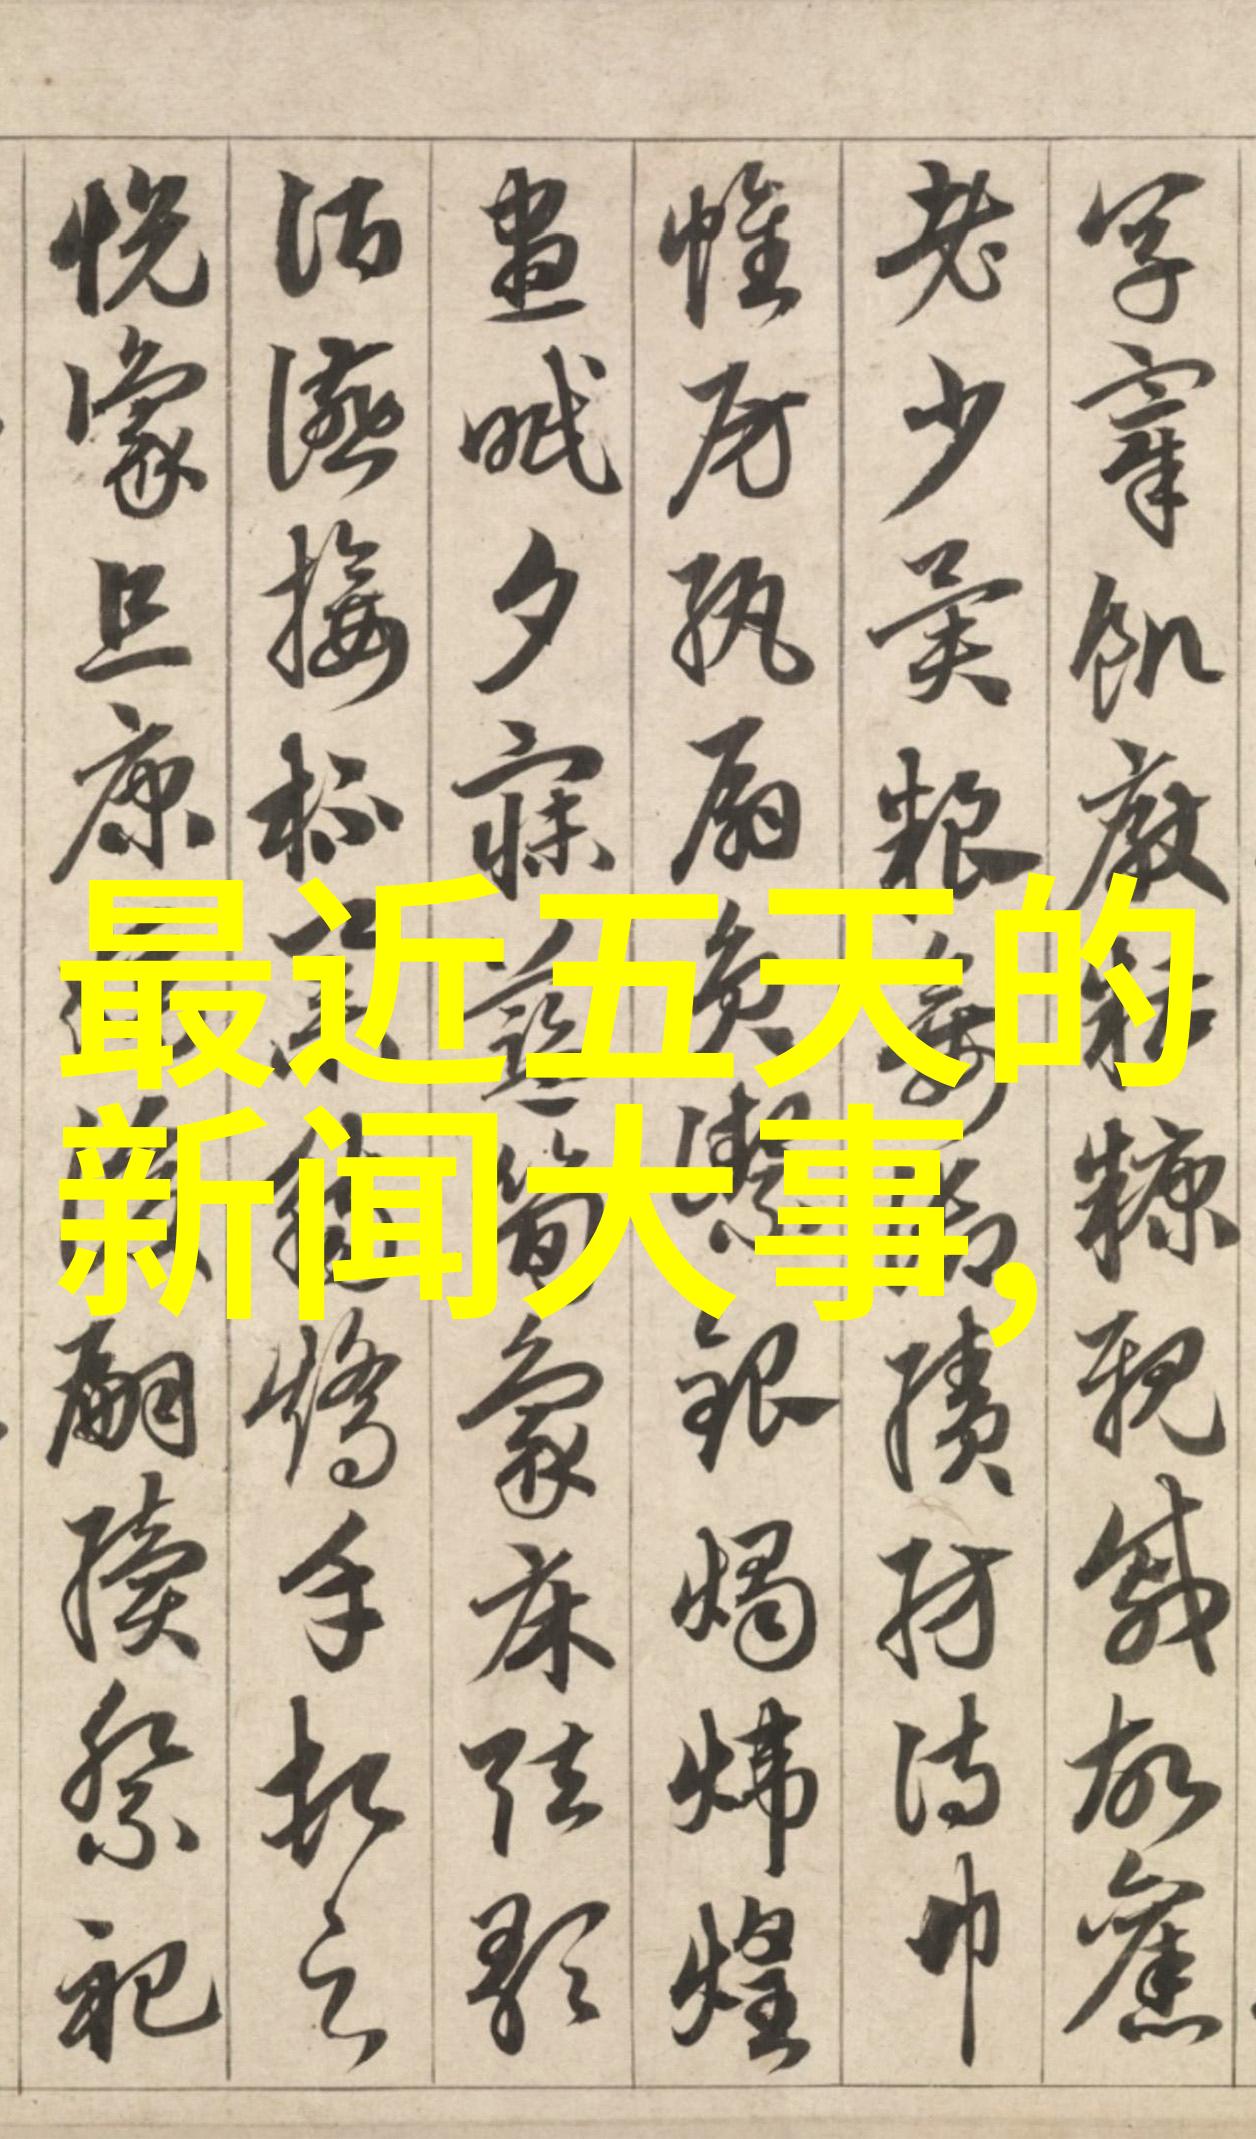 宰飢厭糟糠親戚故舊
老少異粮妾御績紡侍巾
帷房紈扇員潔銀燭煒煌
晝眠夕寐藍筍象床弦歌
酒讌接杯舉觴矯手頓足
悅豫且康嫡後嗣續祭祀
最近五天的
新闻大事,